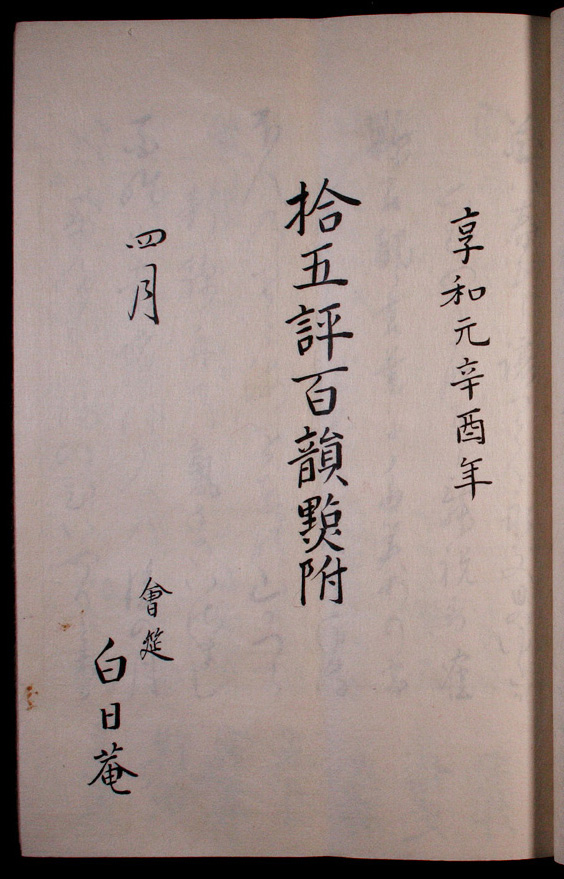 享和元辛酉年
拾五評百韻㸃附
四月
會莚
白日菴